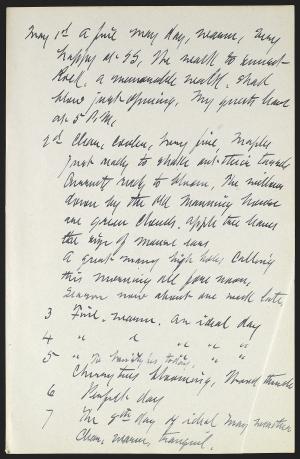 May 1st A fine May day, warm, very
happy at SS, The walk to Sunset
Rock, a memorable walk. Shad
blow just opening. My guests leave
at 5 P.M.
2d Clear, cooler, very fine, Maples
just ready to shake out their tassels
Currants ready to bloom, The willows
down by the old Manning house
are green clouds. Apple tree leaves
the size of mouse ears.
A great many high holes calling
this morning all fore noon,
Season now about one week late,
3 Fine, warm. An ideal day
4 " " " " "
5 " The to day, " "
Cherry trees blooming, Wood thrush
6 Perfect day
7 The 9th day of ideal May weather
Clear, warm, tranquil.